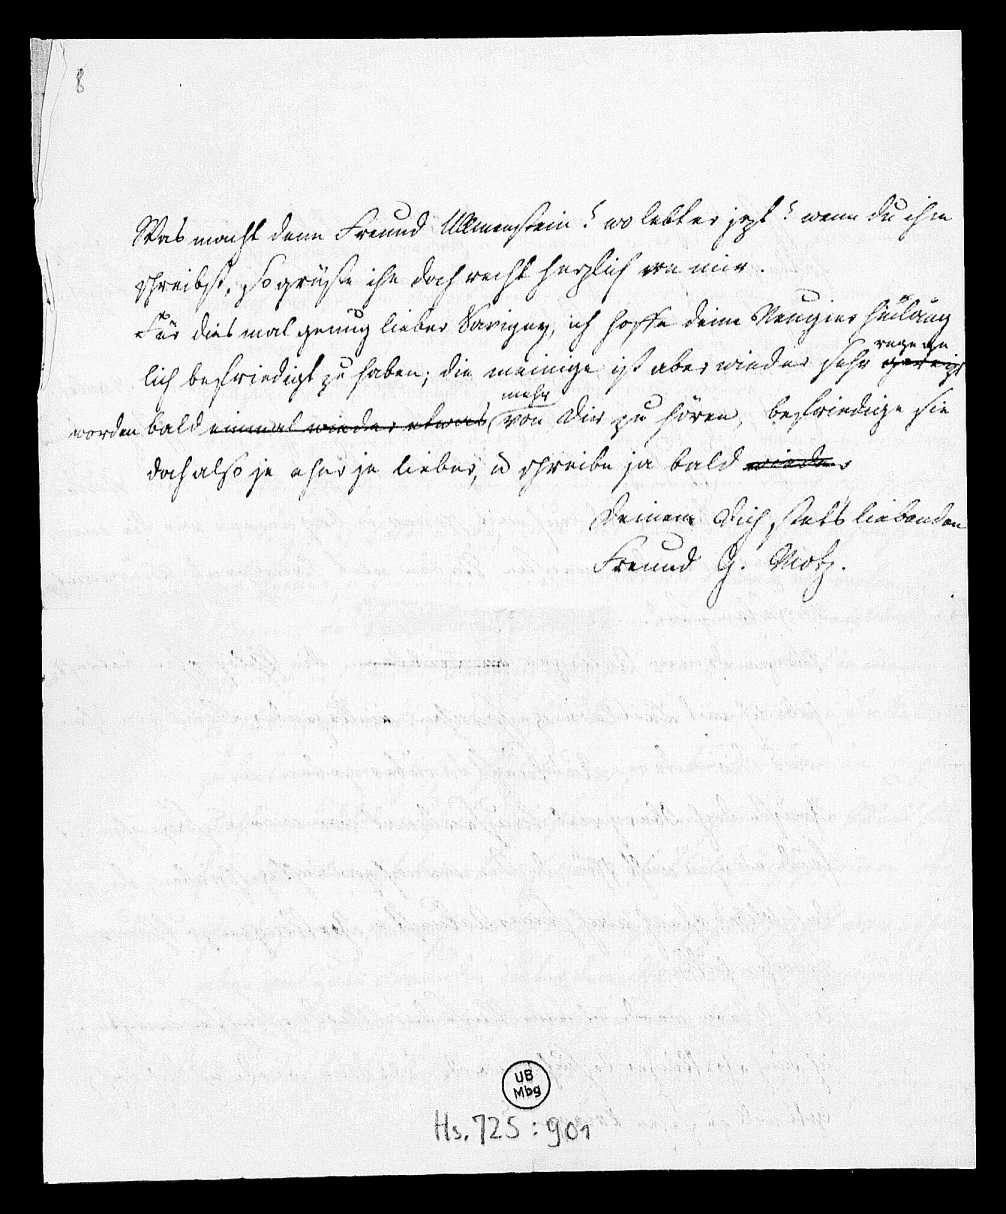 8
Was macht denn Freund Ullmenstein? wo lebt er jezt? wenn du ihm
schreibst, so grüße ihn doch recht herzlich von mir.
Für diesmal genug lieber Savigny, ich hoffe deine Neugier
lich befriedigt zu haben; die meinige ist aber wieder sehr rege ge
worden bald einmal wieder etwas mehr von Dir zu hören, befriedige sie
doch also je eher je lieber, u schreibe ja bald wieder
Deinem Dich stets liebenden
Freund G. Motz.
UB
Mbg
Hs. 725:901